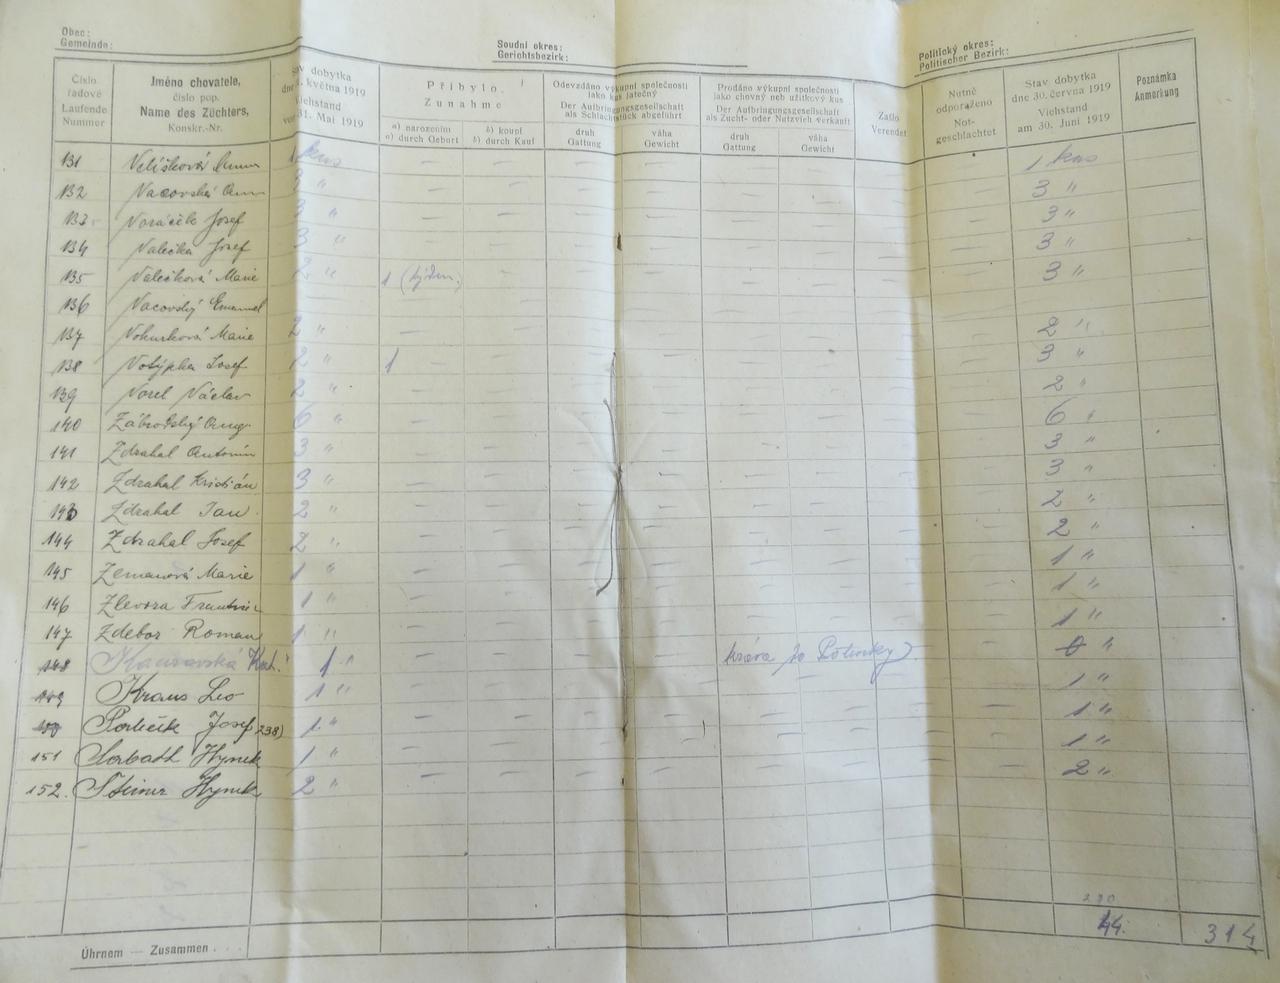 Obec:
Gemeinde:
Soudní okres:
Gerichtsbezirk:
Politický okres:
Politischer Bezirk:
Číslo řadové Laufende Nummer
Jméno chovatele, číslo pop. Name des Züchters, Konskr.-Nr.
dobytka května 1919 Viehstand 31. Mai 1919
Přibylo. Zunahme
a) narozením a) durch Geburt
b) koupí b) durch Kauf
Odevzdáno výkupní společnosti jako kus jatečný Der Aufbringungsgesellschaft als Schlachtstück abgeführt
druh Gattung
váha Gewicht
Prodáno výkupní společnosti jako chovný neb užitkový kus Der Aufbringungsgesellschaft als Zucht- oder Nutzvieh verkauft
druh Gattung
váha Gewicht
Zašlo Verendet
Nutně odporaženo Not-geschlachtet
Stav dobytka dne 30. června 1919 Viehstand am 30. Juni 1919
Poznámka Anmerkung
131 Velíšková 1 kus — — — — — — — — 1 kus
132 Vacovská 3 " — — — — — — — — 3 "
133 Josef 3 " — — — — — — — — 3 "
134 Valečka Josef 3 " — — — — — — — — 3 "
135 Valečková Marie 2 " 1 (týden.) — — — — — — — 3 "
136 Vacovský Emanuel
137 Vohurková Marie 2 " — — — — — — — — 2 "
138 Votýpka Josef 2 " 1 — — — — — — — 3 "
139 Vosel Václav 2 " — — — — — — — — 2 "
140 Zábrodský 6 " — — — — — — — — 6 "
141 Zdrahal Antonín 3 " — — — — — — — — 3 "
142 Zdrahal 3 " — — — — — — — — 3 "
143 Zdrahal Jan 2 " — — — — — — — — 2 "
144 Zdrahal Josef 2 " — — — — — — — — 2 "
145 Zemanová Marie 1 " — — — — — — — — 1 "
146 Zlevora 1 " — — — — — — — — 1 "
147 Zdebor Roman 1 " — — — — — — — — 1 "
148 1 " kráva do 0 "
149 Kraus Leo 1 " — — — — — — — — 1 "
150 Josef 238) 1 " — — — — — — — — 1 "
151 Hynek 1 " — — — — — — — — 1 "
152. Hynek 2 " — — — — — — — — 2 "
Úhrnem — Zusammen . . . 44. 314